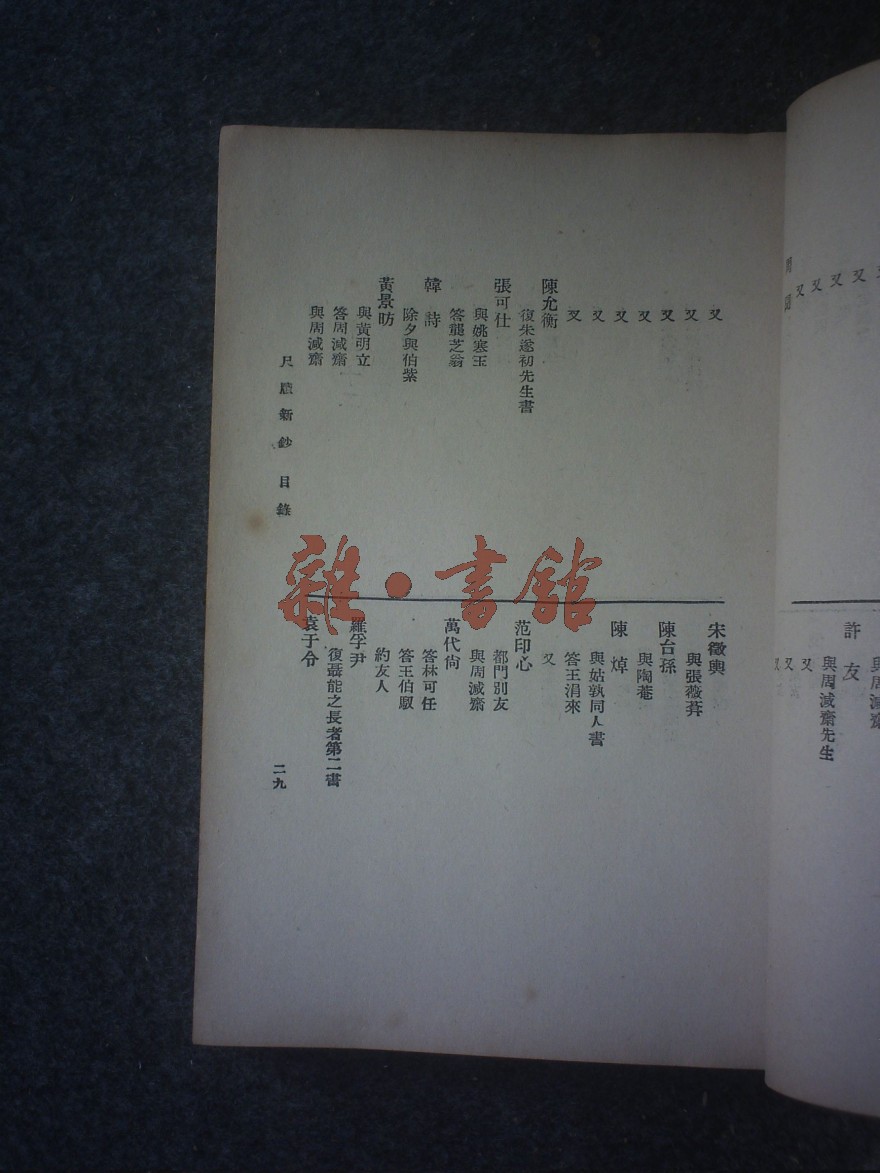 又
又
又
又
又
許友
與周減齋
與周減齋先生
又
又
又
又
又
又
又
又
又
陳允衡
復朱遂初先生書
張可仕
與姚寒玉
答龔芝翁
韓詩
除夕與伯紫
黃景昉
與黃明立
答周減齋
與周減齋
宋徵輿
與張薇葊
陳台孫
與陶菴
陳焯
與姑孰同人書
答王涓來
又
范印心
都門別友
與周減齋
萬代尚
答林可任
答王伯馭
約友人
羅孚尹
復聶能之長者第二書
袁于令
尺牘新鈔 目錄
二九
雜·書館